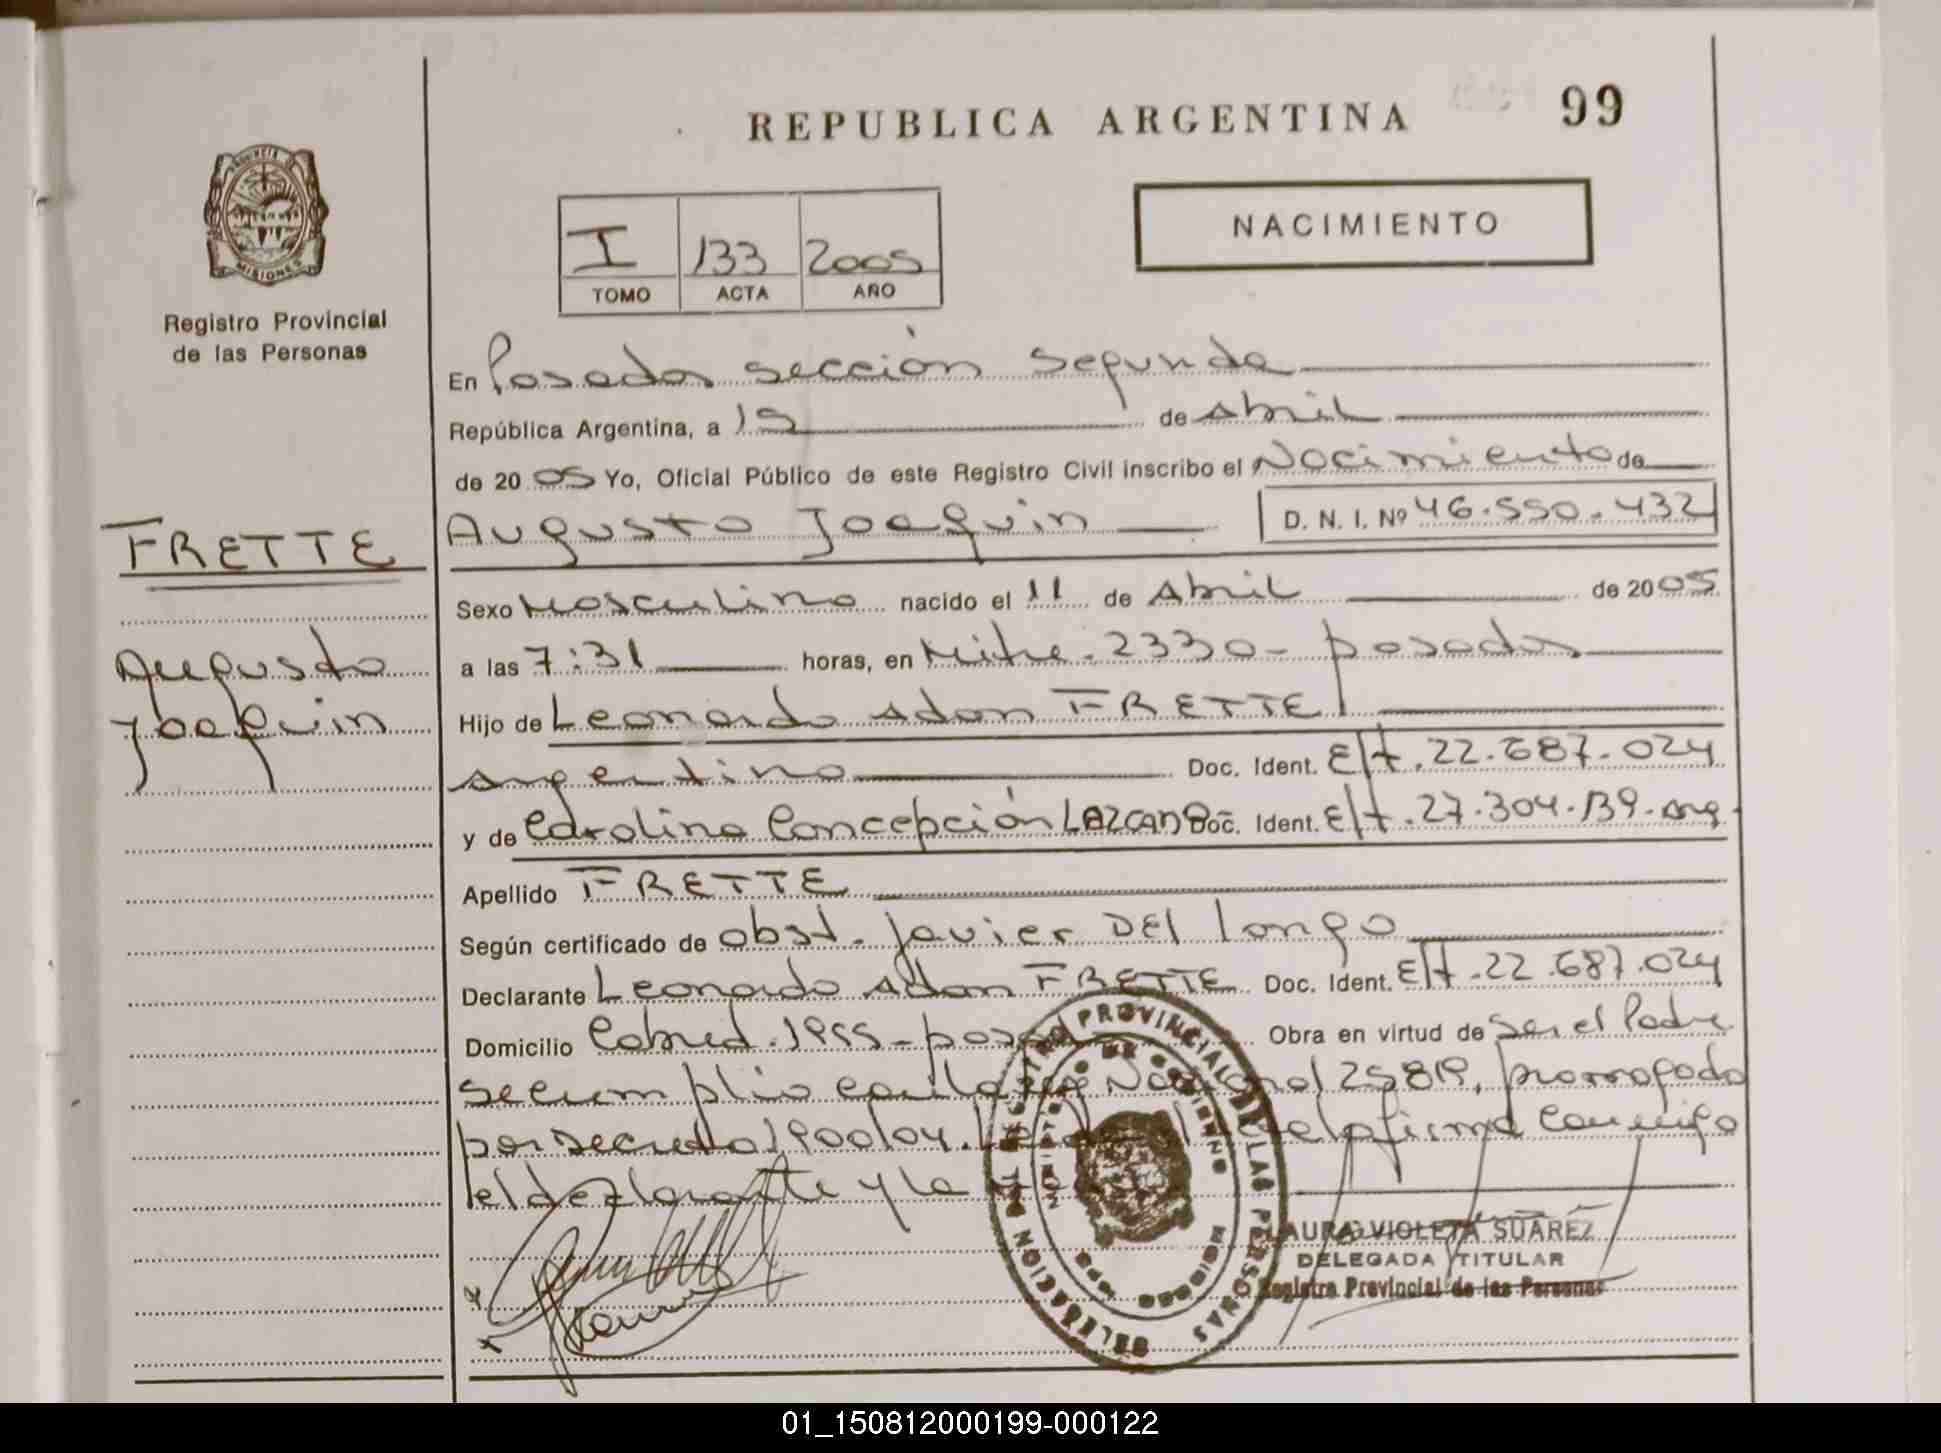 REPUBLICA ARGENTINA 99
PROVINCIA DE MISIONES
Registro Provincial
de las Personas
I 133 2005
TOMO ACTA AÑO
NACIMIENTO
En Posadas sección segunda
República Argentina, a 19 de Abril
de 2005 Yo, Oficial Público de este Registro Civil inscribo el Nacimiento de
FRETTE
Augusto Joaquin
Augusto Joaquin D. N. I. Nº 46.550.432
Sexo Masculino nacido el 11 de Abril de 2005
a las 7:31 horas, en Mitre. 2330 - posadas
Hijo de Leonardo Adan FRETTE
Argentino Doc. Ident. E/t. 22.687.024
y de Carolina Concepción LAZCANO Doc. Ident. E/t. 27.304.139. arg.
Apellido FRETTE
Según certificado de obst. Javier DEL Longo
Declarante Leonardo Adan FRETTE Doc. Ident. E/t. 22.687.024
Domicilio Cabred. 1955 - Obra en virtud de ser el Padre
se cumplio con la Ley Nacional 25819, prorrogado
por decreto 1900/04. la firma conmigo
el declarante y la
DELEGACION DEL REGISTRO PROVINCIAL DE LAS PERSONAS
LAURA VIOLETA SUAREZ
DELEGADA TITULAR
Registro Provincial de las Personas
01_150812000199-000122